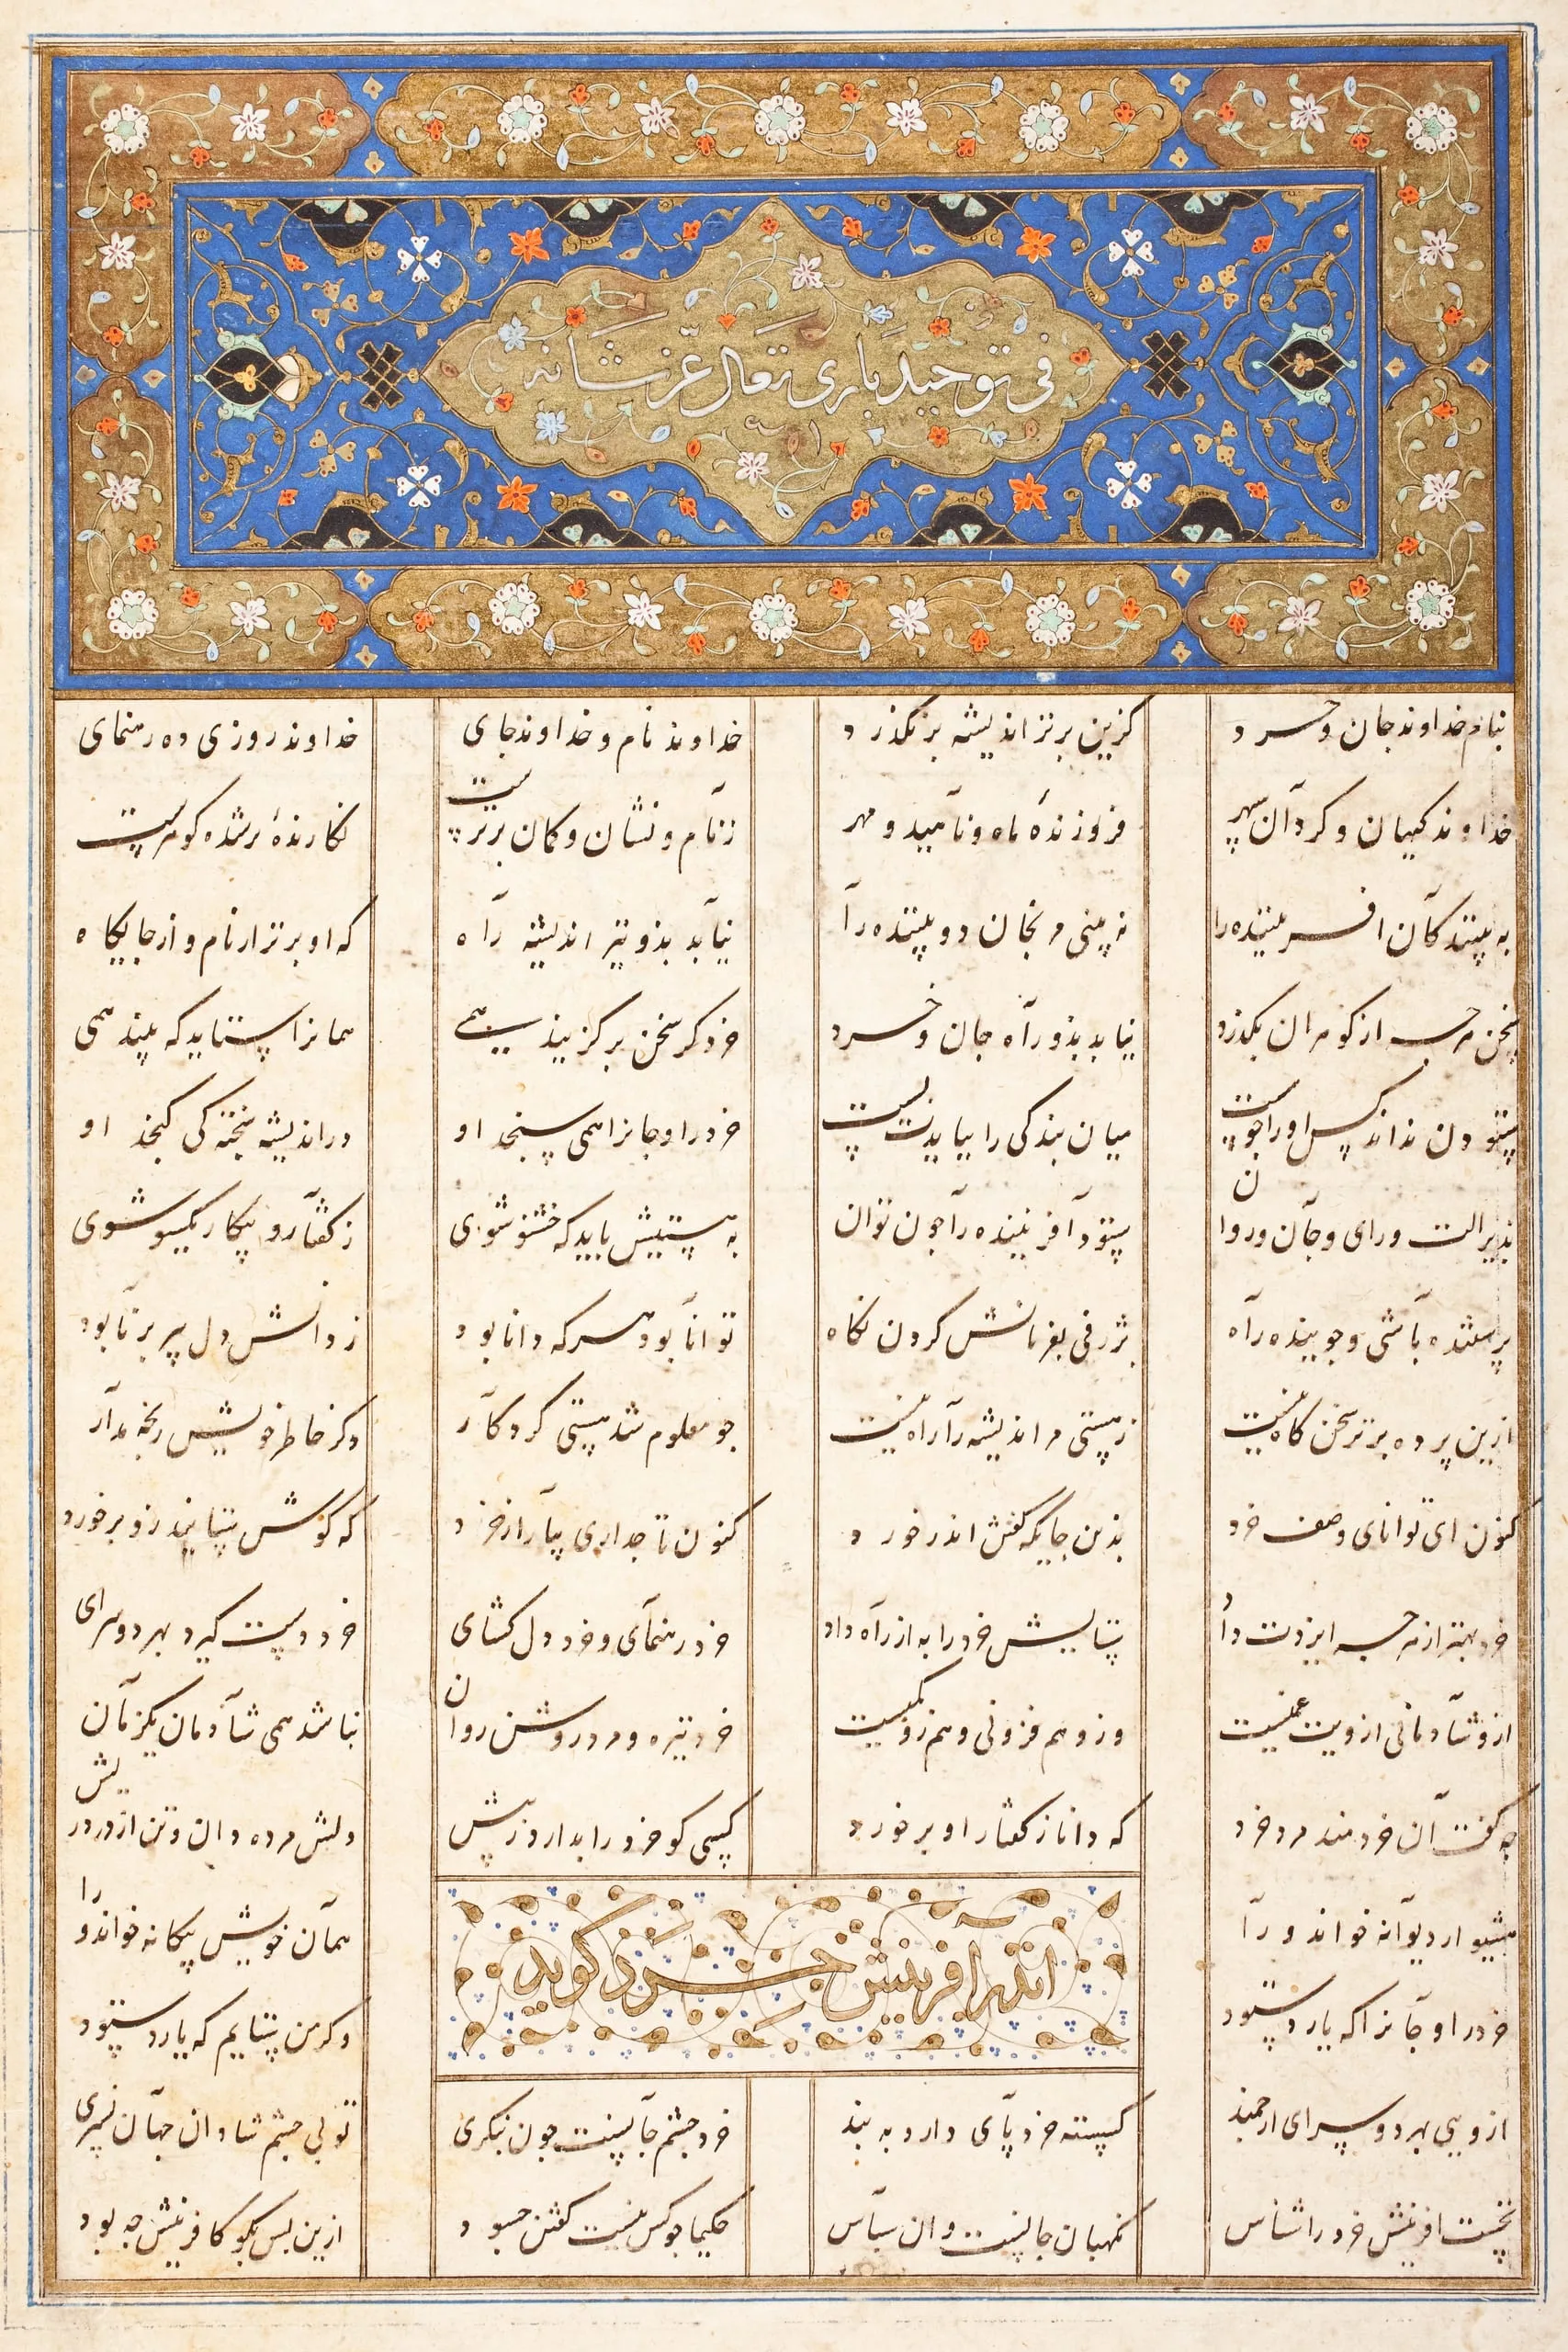 فی توحید باری تعالی عز شانه
بنام خداوند جان و خرد
کزین برتر اندیشه برنکذرد
خداوند نام و خداوند جای
خداوند روزی ده رهنمای
خداوند کیهان و کردان سپهر
فروزنده ماه و ناهید و مهر
ز نام و نشان و کمان برترست
نکارندهٔ برشده کوهرست
به بینندکان آفریننده را
نه بینی مرنجان دو بیننده را
نیابد بذو نیز اندیشه راه
که او برتر از نام و از جایکاه
سخن هرچه از کوهران بکذرد
نیابد بذو راه جان و خرد
خرد کر سخن برکزیند همی
همانرا ستاید که بیند همی
ستودن نداند کس او را چو هست
میان بندکی را ببایدت بست
خرد را و جانرا همی سنجد او
در اندیشه سخته کی کنجد او
بدین آلت و رای و جان و روان
ستود آفریننده را چون توان
به هستیش باید که خستو شوی
ز کفتار و پیکار یکسو شوی
پرستنده باشی و جوینده راه
بژرفی بفرمانش کردن نکاه
توانا بود هرکه دانا بود
ز دانش دل پیر برنا بود
ازین پرده برتر سخن کاه نیست
ز هستی مر اندیشه را راه نیست
جو معلوم شد هستی کردکار
دکر خاطر خویش رنجه مدار
کنون ای توانای وصف خرد
بذین جایکه کفتن اندر خورد
کنون تا چداری بیار از خرد
که کوش نیوشنده زو برخورد
خرد بهتر از هرچه ایزدت داد
ستایش خرد را به از راه داد
خرد رهنمای و خرد دلکشای
خرد دست کیرد بهر دو سرای
ازو شادمانی ازویت غمیست
وزو هم فزونی و هم زو کمیست
خرد تیره و مرد روشن روان
نباشد همی شادمان یکزمان
چه کفت آن خردمند مرد خرد
که دانا ز کفتار او برخورد
کسی کو خرد را ندارد ز پیش
دلش مرده دان و تن از درد ریش
هشیوار دیوانه خواند ورا
همان خویش بیکانه خواند ورا
اندر آفرینش خرد کوید
خرد را و جانرا که یارد ستود
و کر من ستایم که یارد ستود
ازویی بهر دو سرای ارجمند
کسسته خرد پای دارد به بند
خرد چشم جانست چون بنکری
تو بی چشم شادان جهان نسپری
نخست آفرینش خرد را شناس
نکهبان جانست و آن سپاس
حکیما جو کس نیست کفتن چسود
ازین پس بکو کافرینش چه بود